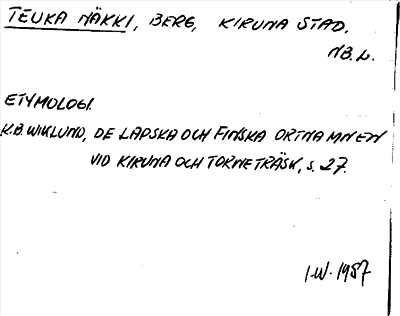 TEUKA NÄKKI, BERG, KIRUNA STAD.
NB.L.
ETYMOLOGI.
K.B. WIKLUND, DE LAPSKA OCH FINSKA ORTNAMNEN
VID KIRUNA OCH TORNETRÄSK, S. 27.
I.W. 1987